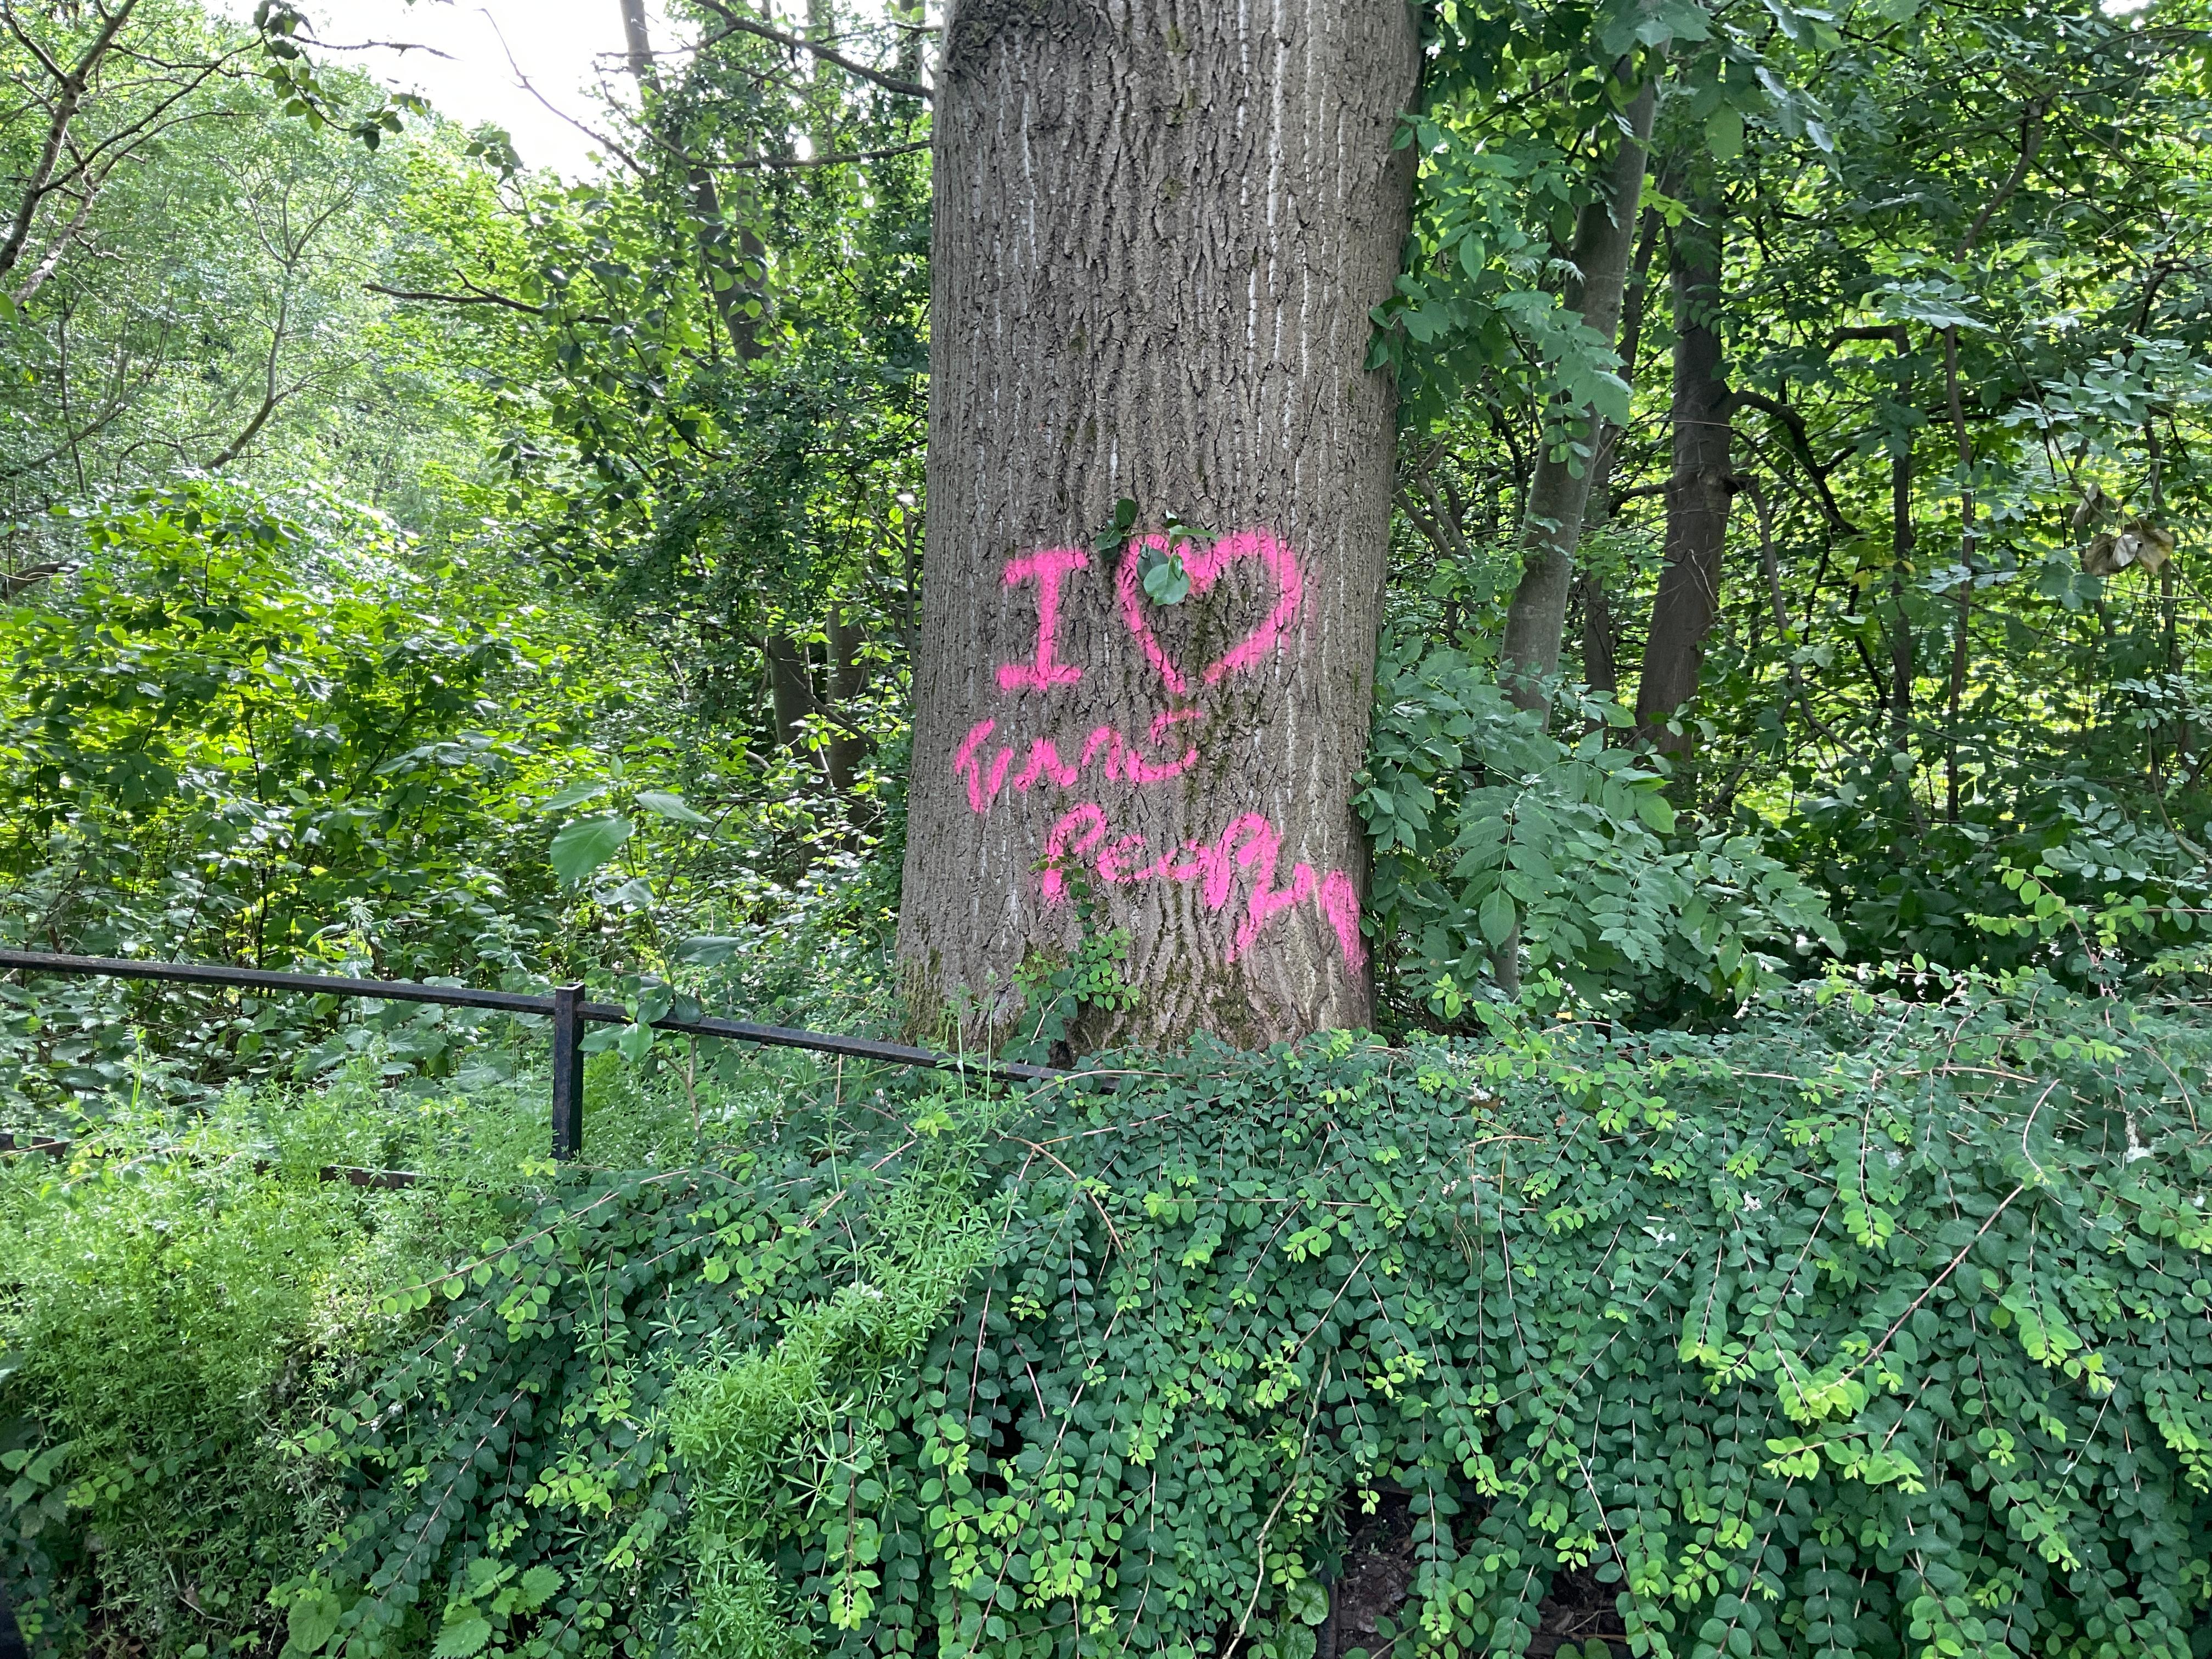 I ♥
trans
People